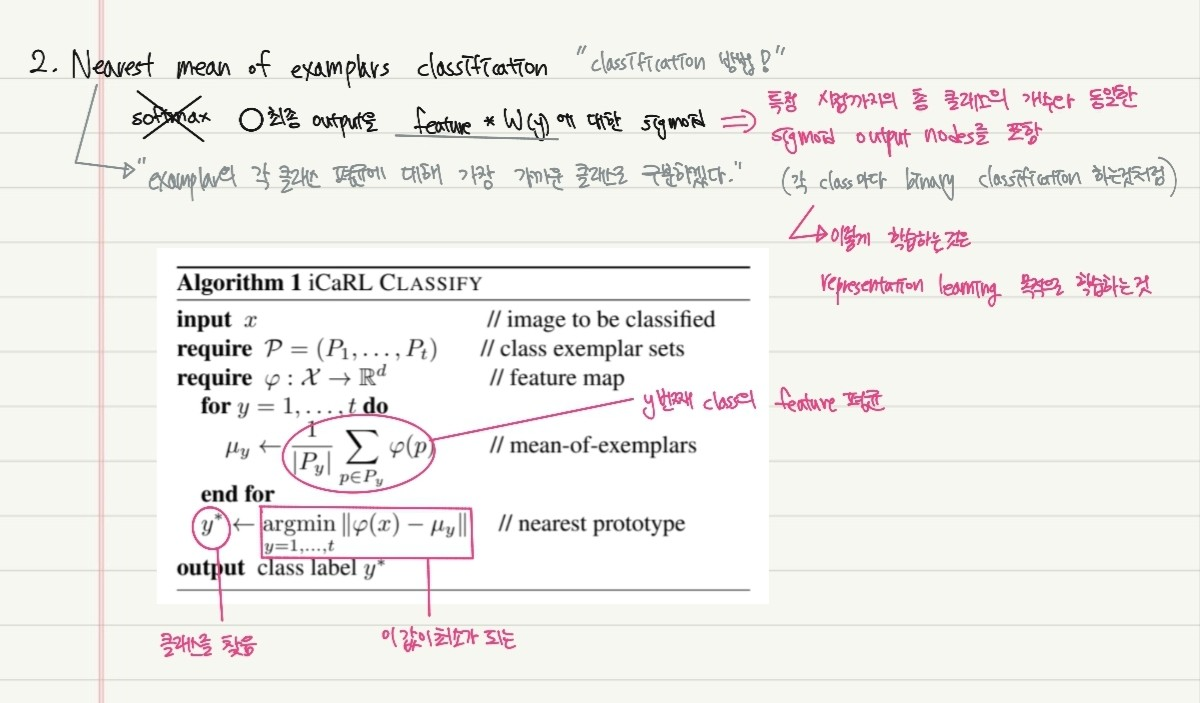 2. Nearest mean of examplars classification "classification 방법!"
softmax ○최종 output을 feature * W(y)에 대한 sigmoid ⇒ 특정 시점까지의 총 클래스의 개수과 동일한
sigmoid output nodes를 포함
"examplar의 각 클래스 평균에 대해 가장 가까운 클래스로 구분하겠다." (각 class마다 binary classification 하는것처럼)
이렇게 학습하는 것은
representation learning 목적으로 학습하는 것
Algorithm 1 iCaRL CLASSIFY
input x // image to be classified
require P = (P₁, . . . , Pₜ) // class exemplar sets
require φ : X → ℝᵈ // feature map
for y = 1, . . . , t do
y번째 class의 feature 평균
μ_y ← 1/|P_y| ∑_{p∈P_y} φ(p) // mean-of-exemplars
end for
y* ← argmin_{y=1,...,t} ‖φ(x) − μ_y‖ // nearest prototype
output class label y*
클래스를 찾음 이 값이 최소가 되는